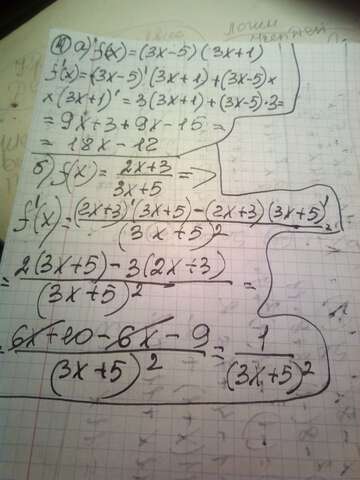 ④ a) f(x)=(3x-5)(3x+1)
f'(x)=(3x-5)'(3x+1)+(3x-5)×
×(3x+1)'=3(3x+1)+(3x-5)·3=
=9x+3+9x-15=
=18x-12
б) f(x)=\frac{2x+3}{3x+5}=>
f'(x)=\frac{(2x+3)'(3x+5)-(2x+3)(3x+5)'}{(3x+5)^2}=
=\frac{2(3x+5)-3(2x+3)}{(3x+5)^2}=
=\frac{6x+10-6x-9}{(3x+5)^2}=\frac{1}{(3x+5)^2}